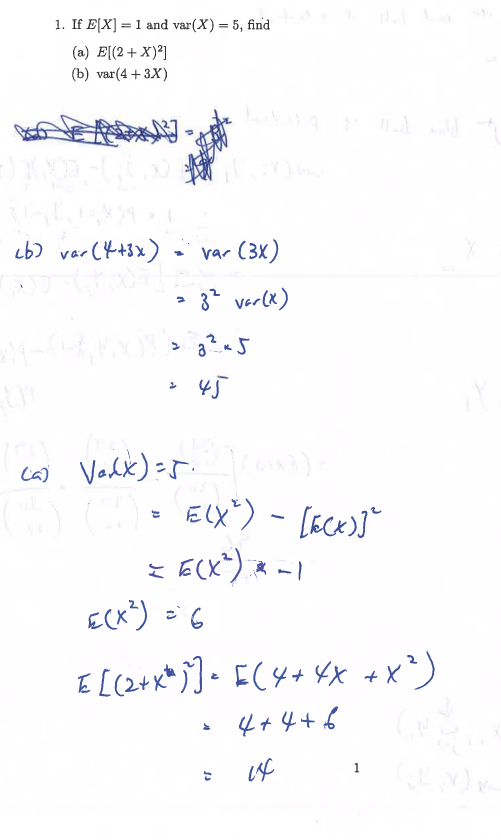 1. If E[X] = 1 and var(X) = 5, find
(a) E[(2 + X)²]
(b) var(4 + 3X)
(b) var(4+3x) = var(3X)
= 3² var(x)
= 3² × 5
= 45
(a) Var(x) = 5.
= E(x²) - [E(x)]²
= E(x²) - 1
E(x²) = 6
E[(2+x)²] = E(4 + 4x + x²)
= 4 + 4 + 6
= 14
1